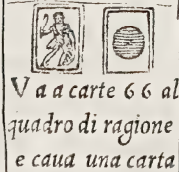 V a a carte 6 6 al
quadro di ragione
e caua una carta